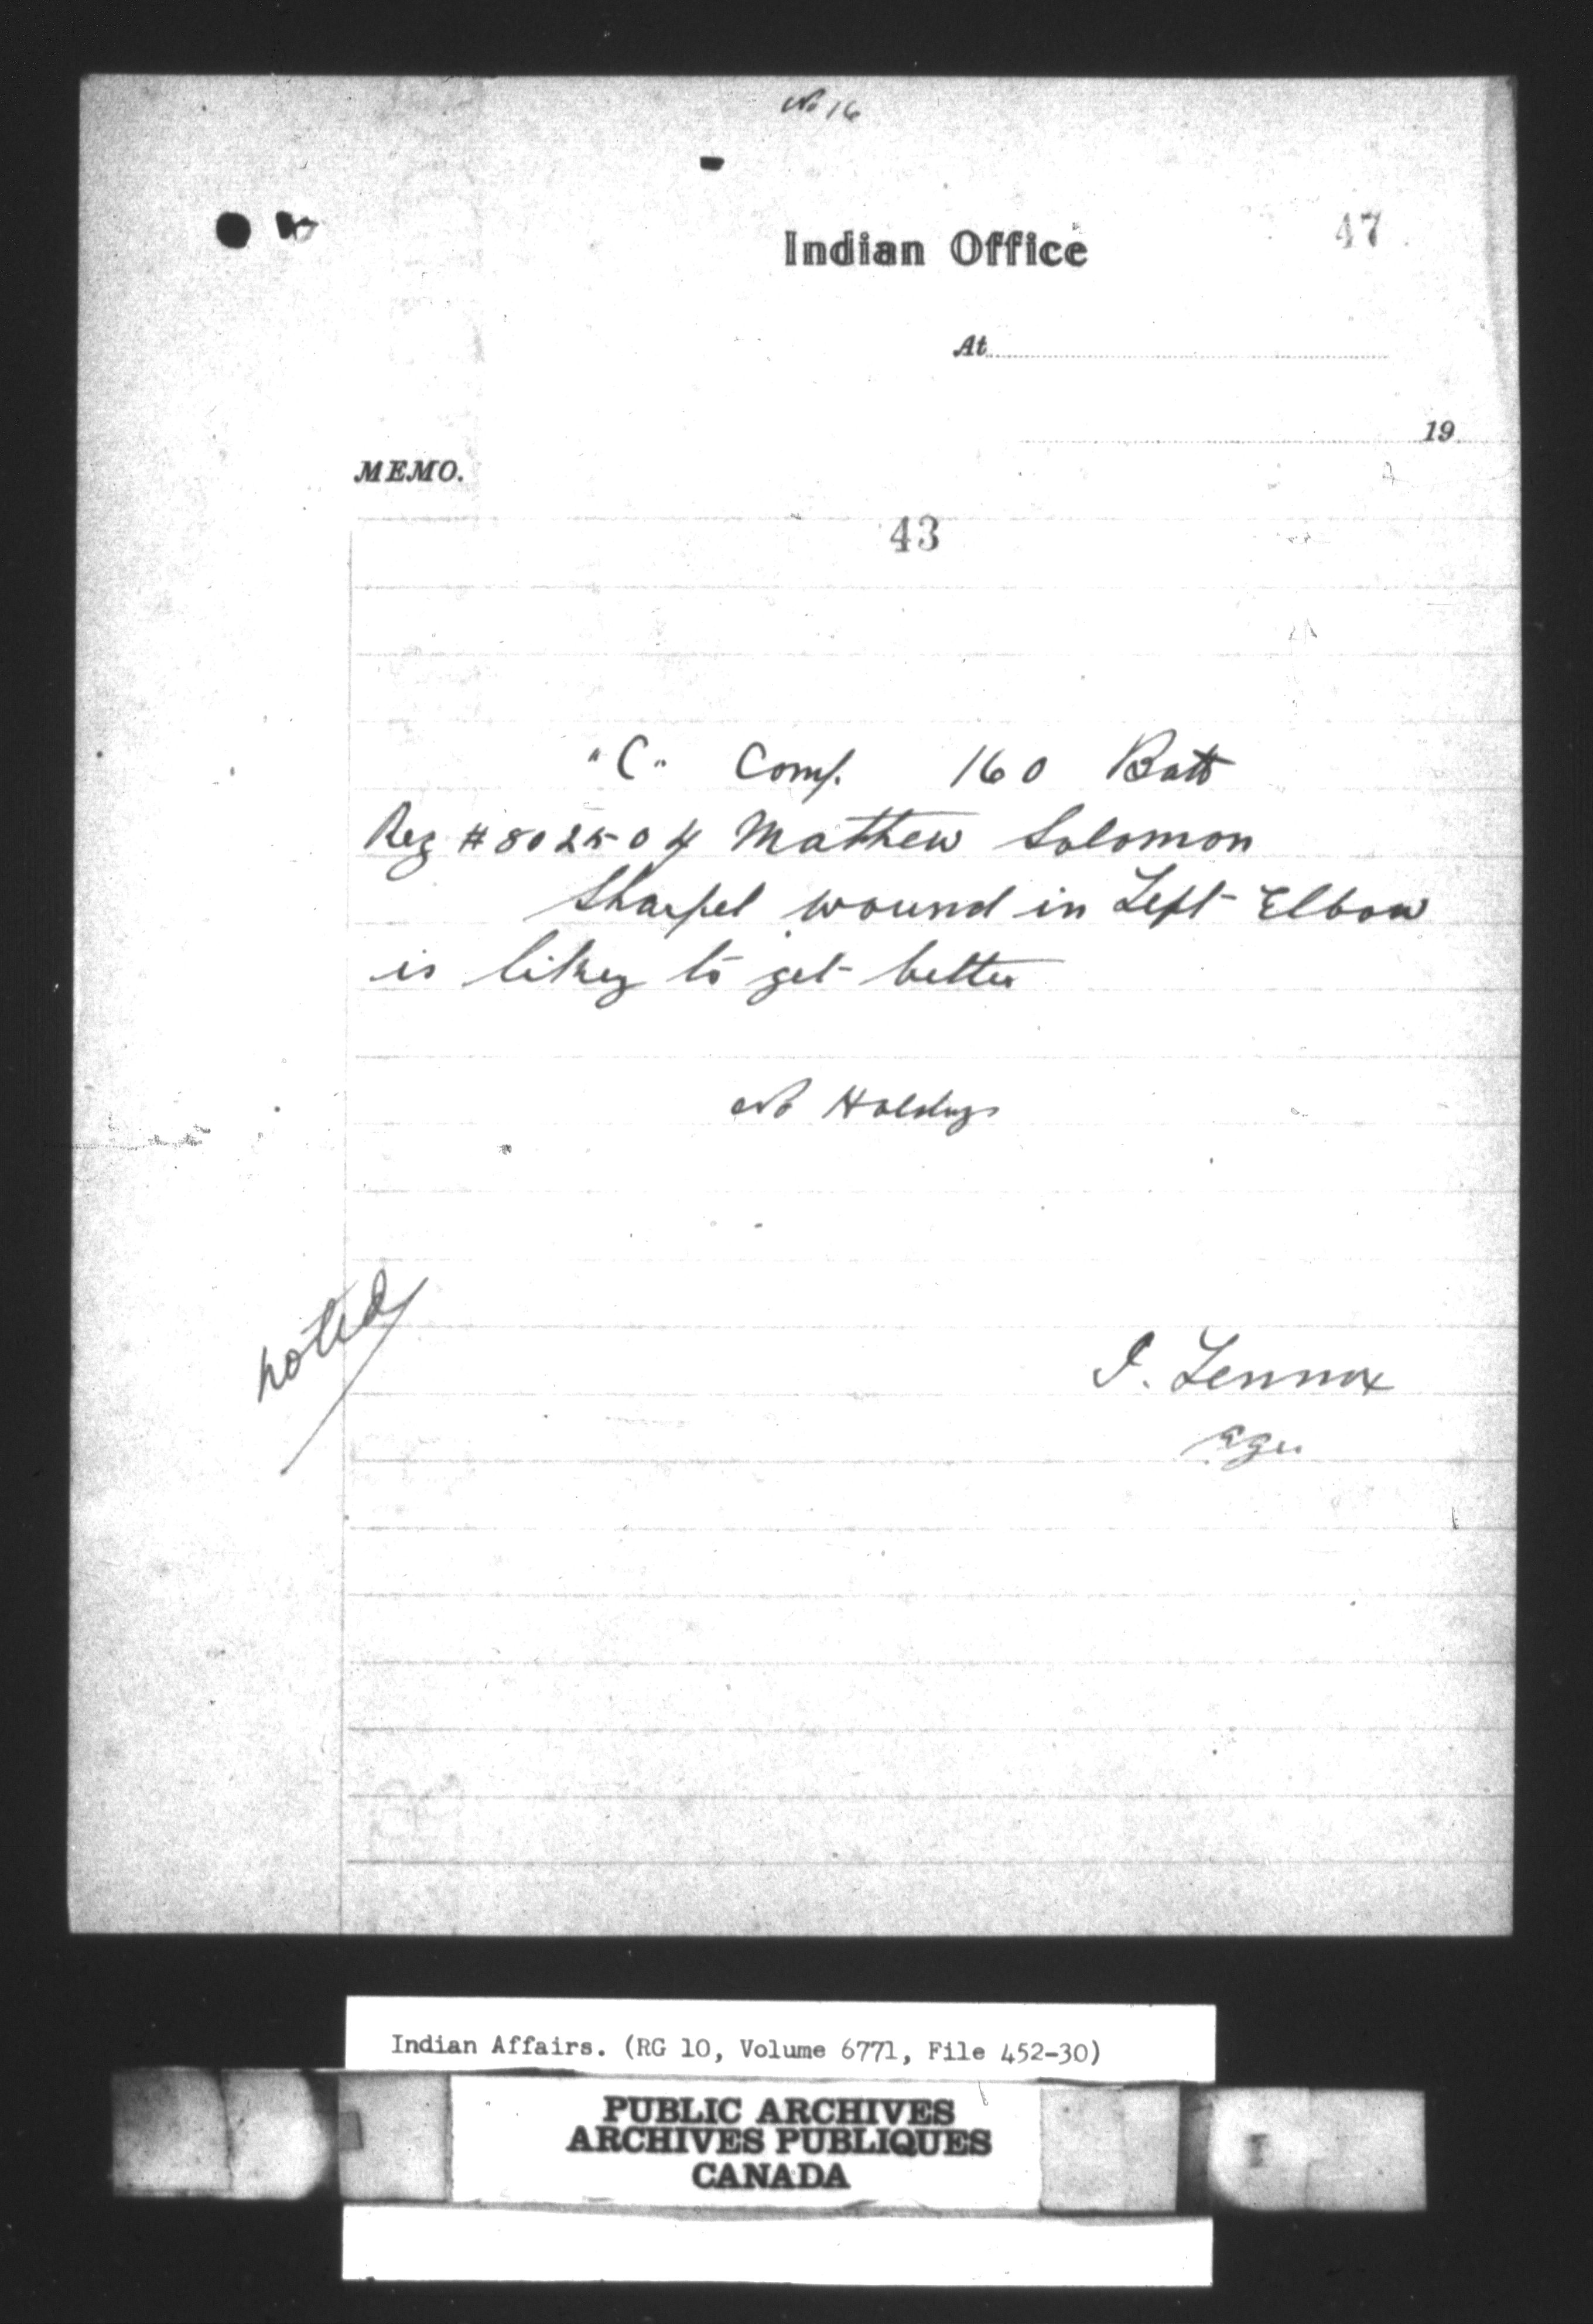 No 16
47
Indian Office
At
19
MEMO.
43
"C" Comp. 160 Batt
Reg #802504 Mathew Solomon
Sharpel wound in Left Elbow
is likey to get better
No Holdings
noted
I. Lennox
Indian Affairs. (RG 10, Volume 6771, File 452-30)
PUBLIC ARCHIVES
ARCHIVES PUBLIQUES
CANADA